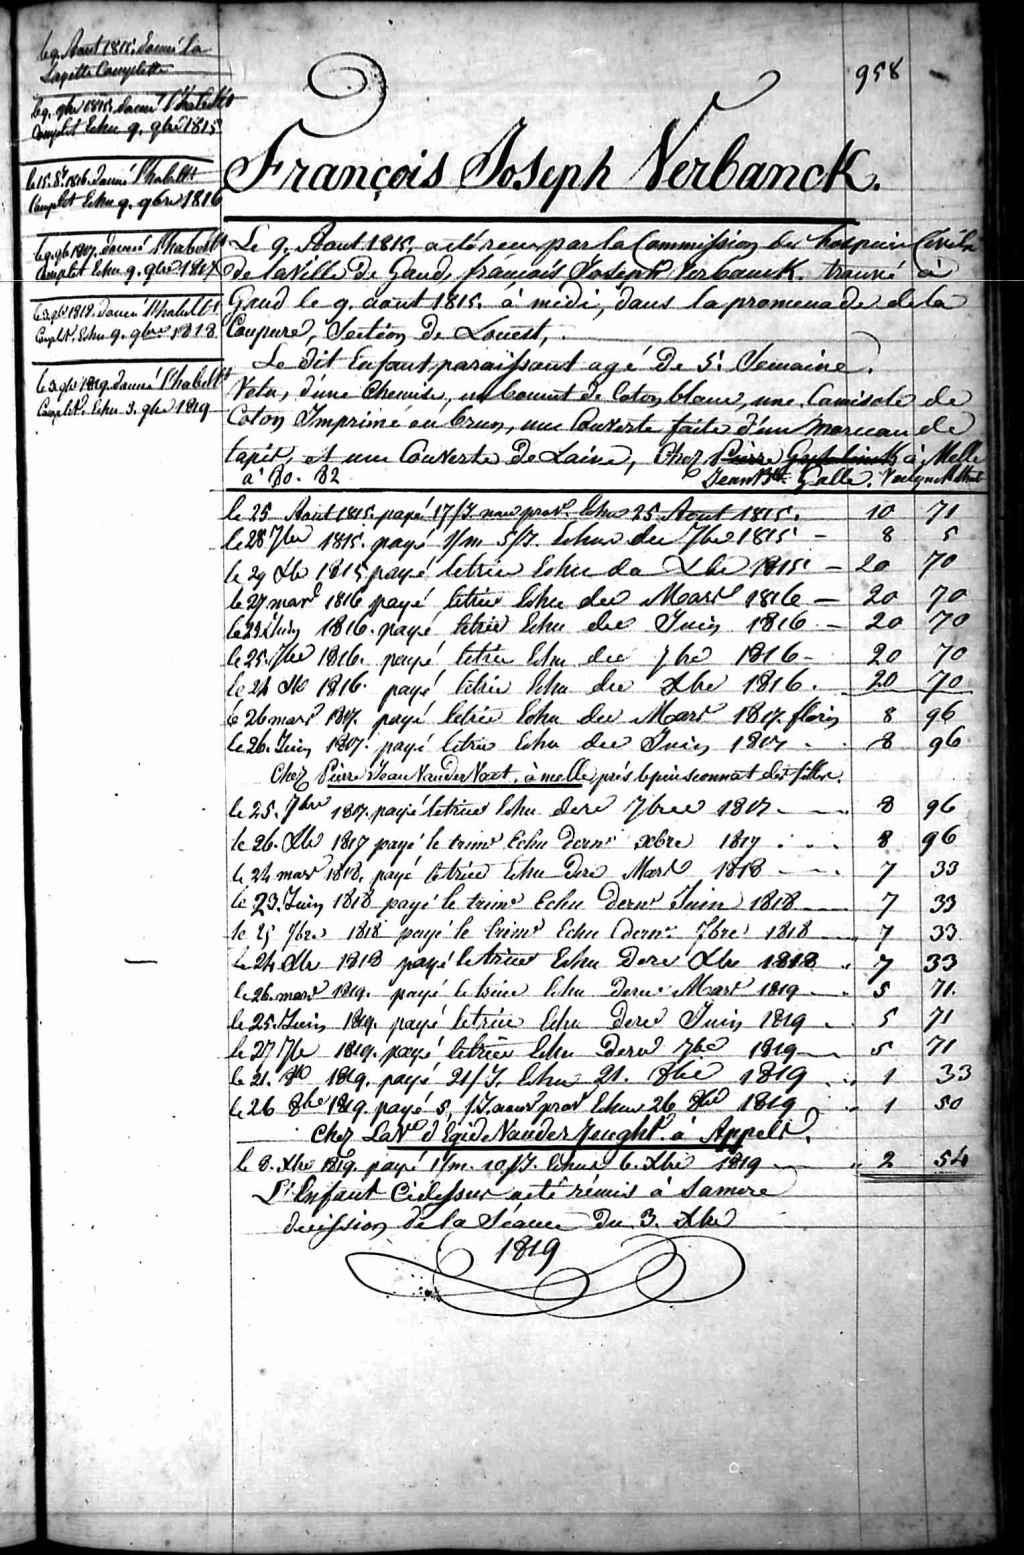 958
le 9. Aout 1815. donné la
Layette Complette
le 9. 9bre 1815. donné l'habillt
Complet Echu 9. 9bre 1815
le 15. 8r. 1816. donné l'habillt
Complet Echu 9. 9bre 1816
le 9. 9b 1817. donné l'habillt
Complet Echu 9. 9bre 1817
1818. donné l'habillt
Complt. Echu 9. 9bre 1818
le 3 9br 1819. donné l'habillt
Complet. Echu 3. 9bre 1819
François Joseph Verbanck.
Le 9. Aout 1815. a été reçu par la Commission des hospices Civils
de la Ville de Gand, françois Joseph Verbanck. trouvé à
Gand le 9. aout 1815. à midi, dans la promenade de la
Coupure, Section de Louest,
Le dit Enfant paraissant agé De 5. Semaine.
Vetu, d'une Chemise, un bonnet de Coton blanc, une Camisole de
Coton Imprimé en brun, une Couverte faite d'un morceau de
tapit, et une Couverte De Laine, Chez Pierre à Melle
à Bo. 82 Jean Bte Galle.
le 25 Aout 1815. payé 17/J. nour prov. Echus 25 Aout 1815. 10 71
le 28 7bre 1815. payé 1/m 5/J. Echus der 7bre 1815 - 8 5
le 29 Xbr 1815 payé letrim Echu de Xbr 1815 - 20 70
le 27 mars 1816 payé letrim Echu der Mars 1816 - 20 70
le 23 Juin 1816. payé letrim Echu der Juin 1816 - 20 70
le 25. 7bre 1816. payé letrim Echu der 7bre 1816 - 20 70
le 24 Xb 1816. payé letrim Echu der Xbre 1816. 20 70
le 26 mars 1817. payé letrim Echu der Mars 1817. florin 8 96
le 26. Juin 1817. payé letrim Echu der Juin 1817 . . 8 96
Chez Pierre Jean Vander Vaet, à melle près le pensionnat des filles.
le 25. 7bre 1817. payé letrim Echu dere 7bre 1817 8 96
le 26. Xbr 1817 payé le trimr Echu dernr xbre 1817 . . . 8 96
le 24 mars 1818. payé letrim Echu dere Mars 1818 7 33
le 23. Juin 1818 payé le trimr Echu dernr Juin 1818 7 33
le 25 7bre 1818 payé le trimr Echu dernr. 7bre 1818 7 33
le 24 Xbr 1818 payé le trim Echu dere Xbr 1818 7 33
le 26. mars 1819. payé le trim Echu dernr Mars 1819 5 71.
le 25. Juin 1819. payé letrim Echu dere Juin 1819 . 5 71
le 27 7br 1819. payé letrim Echu dern 7bre 1819 5 71
le 21. 8b 1819. payé 21/J. Echus 21. 8bre 1819 1 33
le 26 8bre 1819. payé 5, /J. nour prov Echus 26 8bre 1819 1 50
Chez La Ve d'Egide Vander Jeught. à Appels.
le 8. Xbre 1819. payé 1/m. 10/J. Echus 6. Xbre 1819 2 54
L'Enfant Cidessus a été rémis à sa mere
decission de la Séance Du 3. Xbre
1819